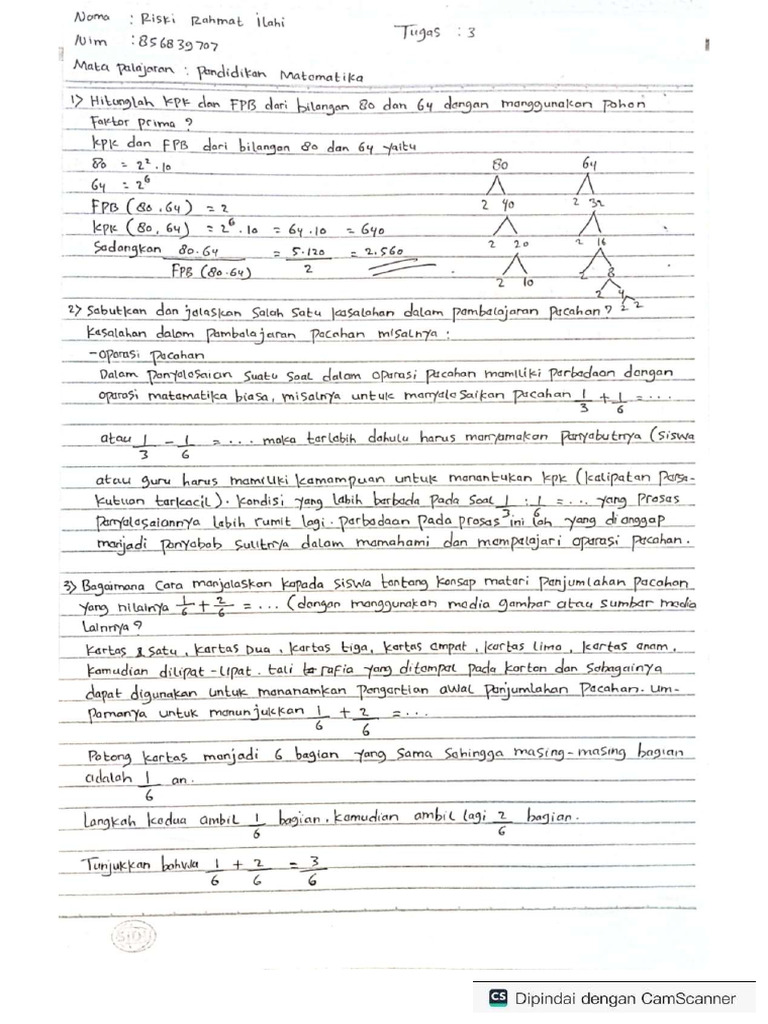 Nama : Riski Rahmat ilahi
Tugas : 3
Nim : 856839707
Mata palajaran : Pendidikan Matematika
1) Hitunglah KPK dan FPB dari bilangan 80 dan 64 dengan menggunakan pohon
Faktor prima ?
KPK dan FPB dari bilangan 80 dan 64 yaitu
80 = 2².10
64 = 2⁶
FPB (80.64) = 2
KPK (80, 64) = 2⁶.10 = 64.10 = 640
Sedangkan 80.64 / FPB (80.64) = 5.120 / 2 = 2.560
80
2 40
2 20
2 10
64
2 32
2 16
2 8
2 4
2 2
2) Sebutkan dan jelaskan Salah Satu kesalahan dalam pembelajaran Pecahan ?
Kesalahan dalam Pembelajaran Pecahan misalnya :
- Operasi Pecahan
Dalam Penyelesaian Suatu Soal dalam operasi Pecahan memiliki Perbedaan dengan
operasi matematika biasa, misalnya untuk menyelesaikan Pecahan 1/3 + 1/6 = ....
atau 1/3 - 1/6 = .... maka terlebih dahulu harus menyamakan Penyebutnya (Siswa
atau guru harus memiliki kemampuan untuk menentukan KPK (kelipatan Perse-
kutuan terkecil). Kondisi yang lebih berbeda pada Soal 1/3 : 1/6 = .... yang Proses
Penyelesaiannya lebih rumit lagi. Perbedaan pada proses ini lah yang di anggap
menjadi Penyebab Sulitnya dalam memahami dan mempelajari operasi Pecahan.
3) Bagaimana Cara menjelaskan kepada siswa tentang konsep materi Penjumlahan Pecahan
yang nilainya 1/6 + 2/6 = .... (dengan menggunakan media gambar atau Sumber media
Lainnya ?
Kertas Satu, kertas Dua, kertas tiga, kertas empat, kertas lima, kertas enam.
Kemudian dilipat-lipat. tali rafia yang ditempel pada karton dan Sebagainya
dapat digunakan untuk menanamkan Pengertian awal Penjumlahan Pecahan. Um-
Pamanya untuk menunjukkan 1/6 + 2/6 = ....
Potong kertas menjadi 6 bagian yang sama Sehingga masing-masing bagian
adalah 1/6 an.
Langkah kedua ambil 1/6 bagian. Kemudian ambil lagi 2/6 bagian.
Tunjukkan bahwa 1/6 + 2/6 = 3/6
CS Dipindai dengan CamScanner